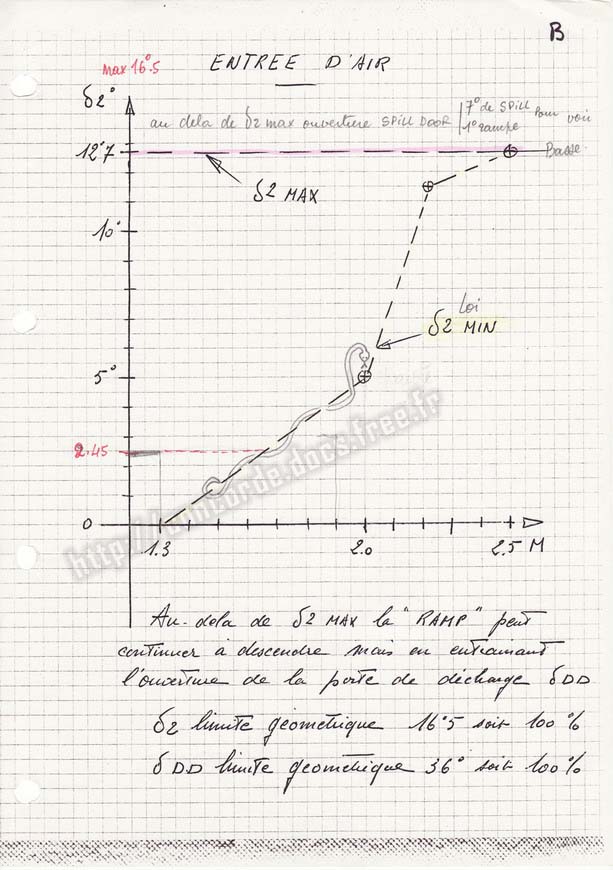 B
max 16°.5
ENTREE D'AIR
δ2°
au dela de δ2 max ouverture SPILL DOOR | 7° de SPILL pour voir
1° rampe
12°7
Basse.
δ2 MAX
10°
Loi
δ2 MIN
5°
2.45
0
1.3
2.0
2.5 M
http://concorde.docs.free.fr
Au-dela de δ2 MAX la "RAMP" peut
continuer à descendre mais en entrainant
l'ouverture de la porte de décharge δDD
δ2 limite géométrique 16°5 soit 100%
δDD limite géométrique 36° soit 100%